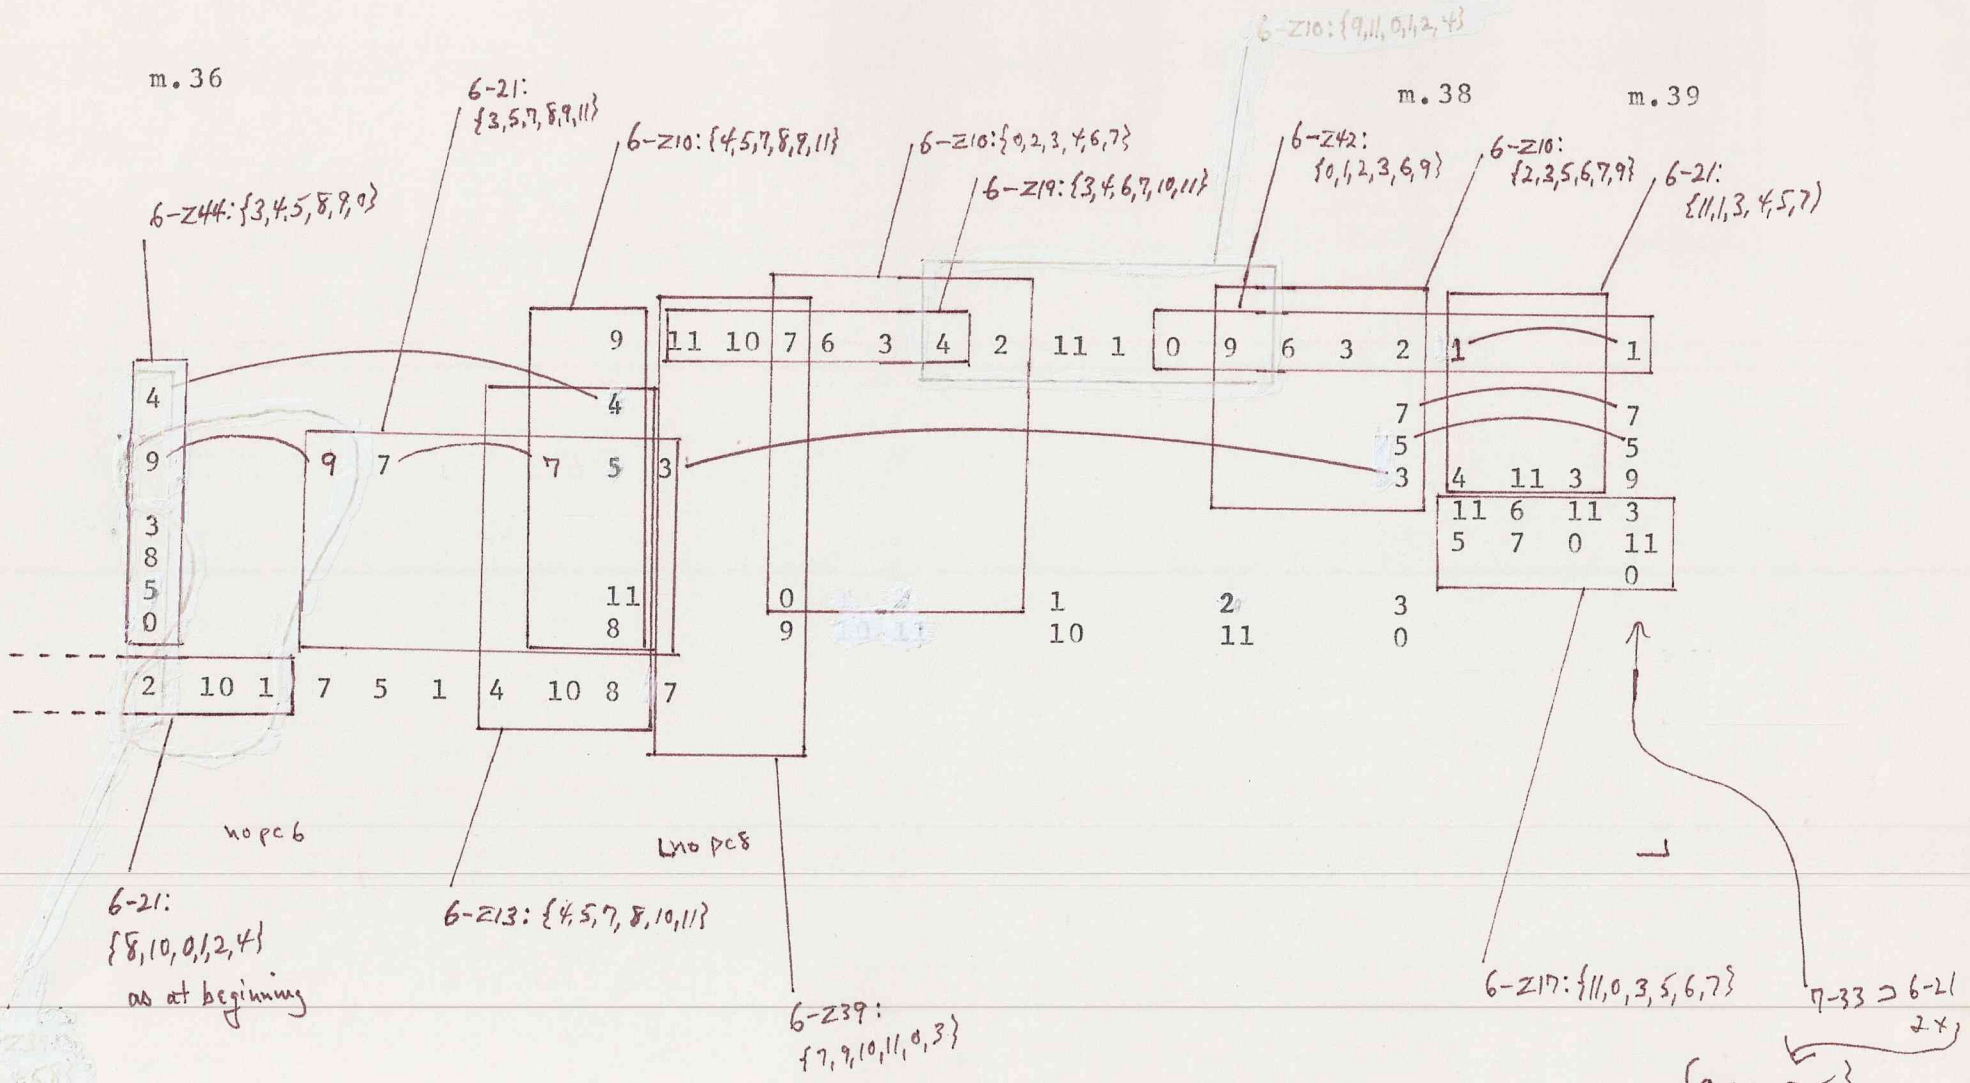 6-Z10:{9,11,0,1,2,4}
m.36
m.38
m.39
6-21:
{3,5,7,8,9,11}
6-Z10:{4,5,7,8,9,11}
6-Z10:{0,2,3,4,6,7}
6-Z42:
{0,1,2,3,6,9}
6-Z10:
{2,3,5,6,7,9}
6-21:
{11,1,3,4,5,7}
6-Z44:{3,4,5,8,9,0}
6-Z19:{3,4,6,7,10,11}
9 11 10 7 6 3 4 2 11 1 0 9 6 3 2 1 1
4 4 7 7
5 5
9 9 7 7 5 3 3 4 11 3 9
3 11 6 11 3
8 5 7 0 11
5 0
11 0 1 2 3
0 8 9 10 11 0
2 10 1 7 5 1 4 10 8 7
no pc6
no pc8
6-21:
{8,10,0,1,2,4}
as at beginning
6-Z13:{4,5,7,8,10,11}
6-Z39:
{7,9,10,11,0,3}
6-Z17:{11,0,3,5,6,7}
7-33 ⊃ 6-21
2x